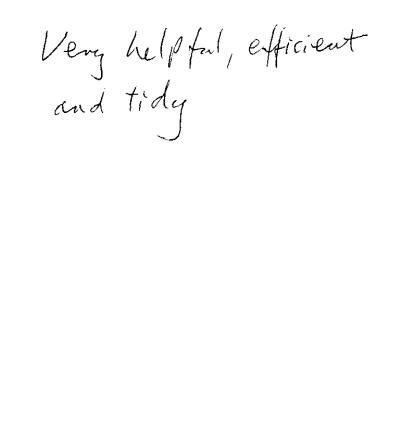 Very helpful, efficient
and tidy